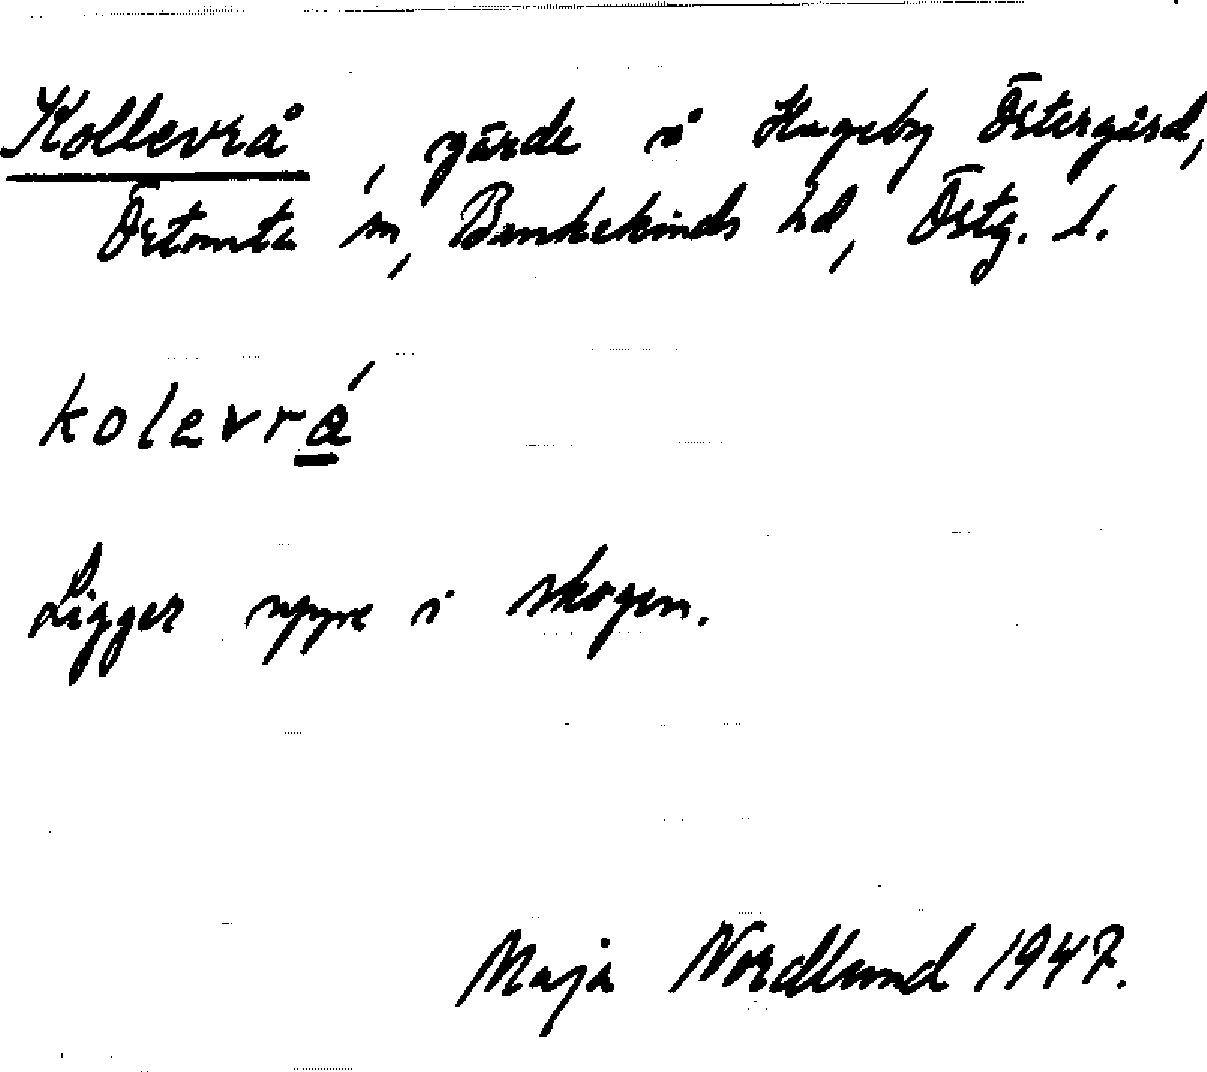 Kollevrå, gärde i Hageby Östergård,
Östomta sn, Bankekinds hd, Östg. l.
kolevrá
Ligger uppe i skogen.
Maja Nordlund 1947.